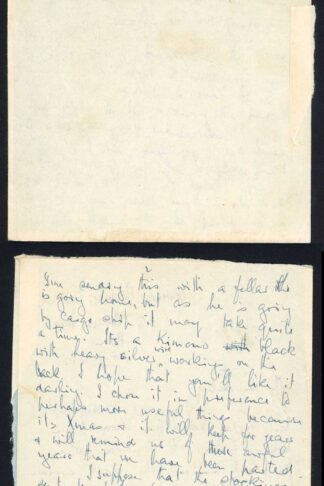 2
I'm sending this with a fellar who
is going home, but as he is going
by cargo ship it may take quite
a time. It's a Kimono with black
with heavy silver wire working on the
back I hope that you'll like it
darling I chose it in preference to
perhaps more useful things because
its Xmas & it will keep for years
& will remind us of these awful
years that we have been parted.
I suppose that the